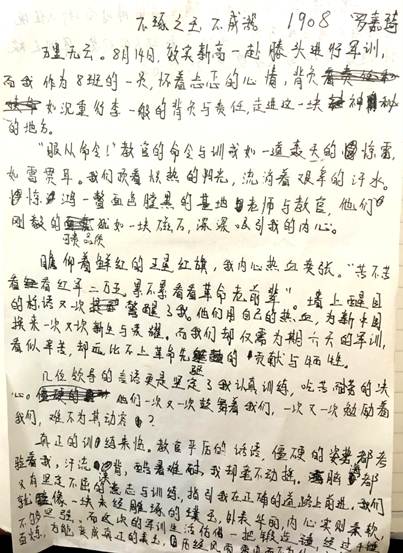 不琢之玉 不成器 1908 罗嘉琦
万里无云。8月14日，我实新高一赴滕头进行军训，
而我作为8班的一员，怀着忐忑的心情，背负
如沉重行李一般的背负与责任，走进这一块神秘
的地方。
“服从命令！”教官的命令与训戒如一道轰天的惊雷，
如雷贯耳。我们顶着炽热的阳光，流淌着艰辛的汗水。
惊鸿一瞥面色黢黑的基地老师与教官，他们
刚毅的品质就如一块磁石，深深吸引我的内心。
瞻仰着鲜红的五星红旗，我内心热血贲张。“苦不苦
看看红军二万五，累不累看看革命老前辈”。墙上醒目
的标语又一次警醒了我。他们用自己的热血，为新中国
换来一次又一次新生与荣耀。而我们却仅需为期六天的军训，
看似辛苦，却远比不上革命先辈的贡献与牺牲。
几位领导的言语更是坚定了我认真训练，吃苦耐劳的决
心。他们一次又一次鼓舞着我们，一次又一次勉励着
我们，难不为其动容？
真正的训练来临。教官严厉的话语，僵硬的姿势都考
验着我，汗流背，酷暑难耐，我却毫不动摇。脑都
只有坚定不屈的意志与训练，指引我在正确的道路上前进，我们
就像一块未经雕琢的璞玉，外表华丽内心实则柔软，
不够坚强。而这次的军训生活恰似一把锻造